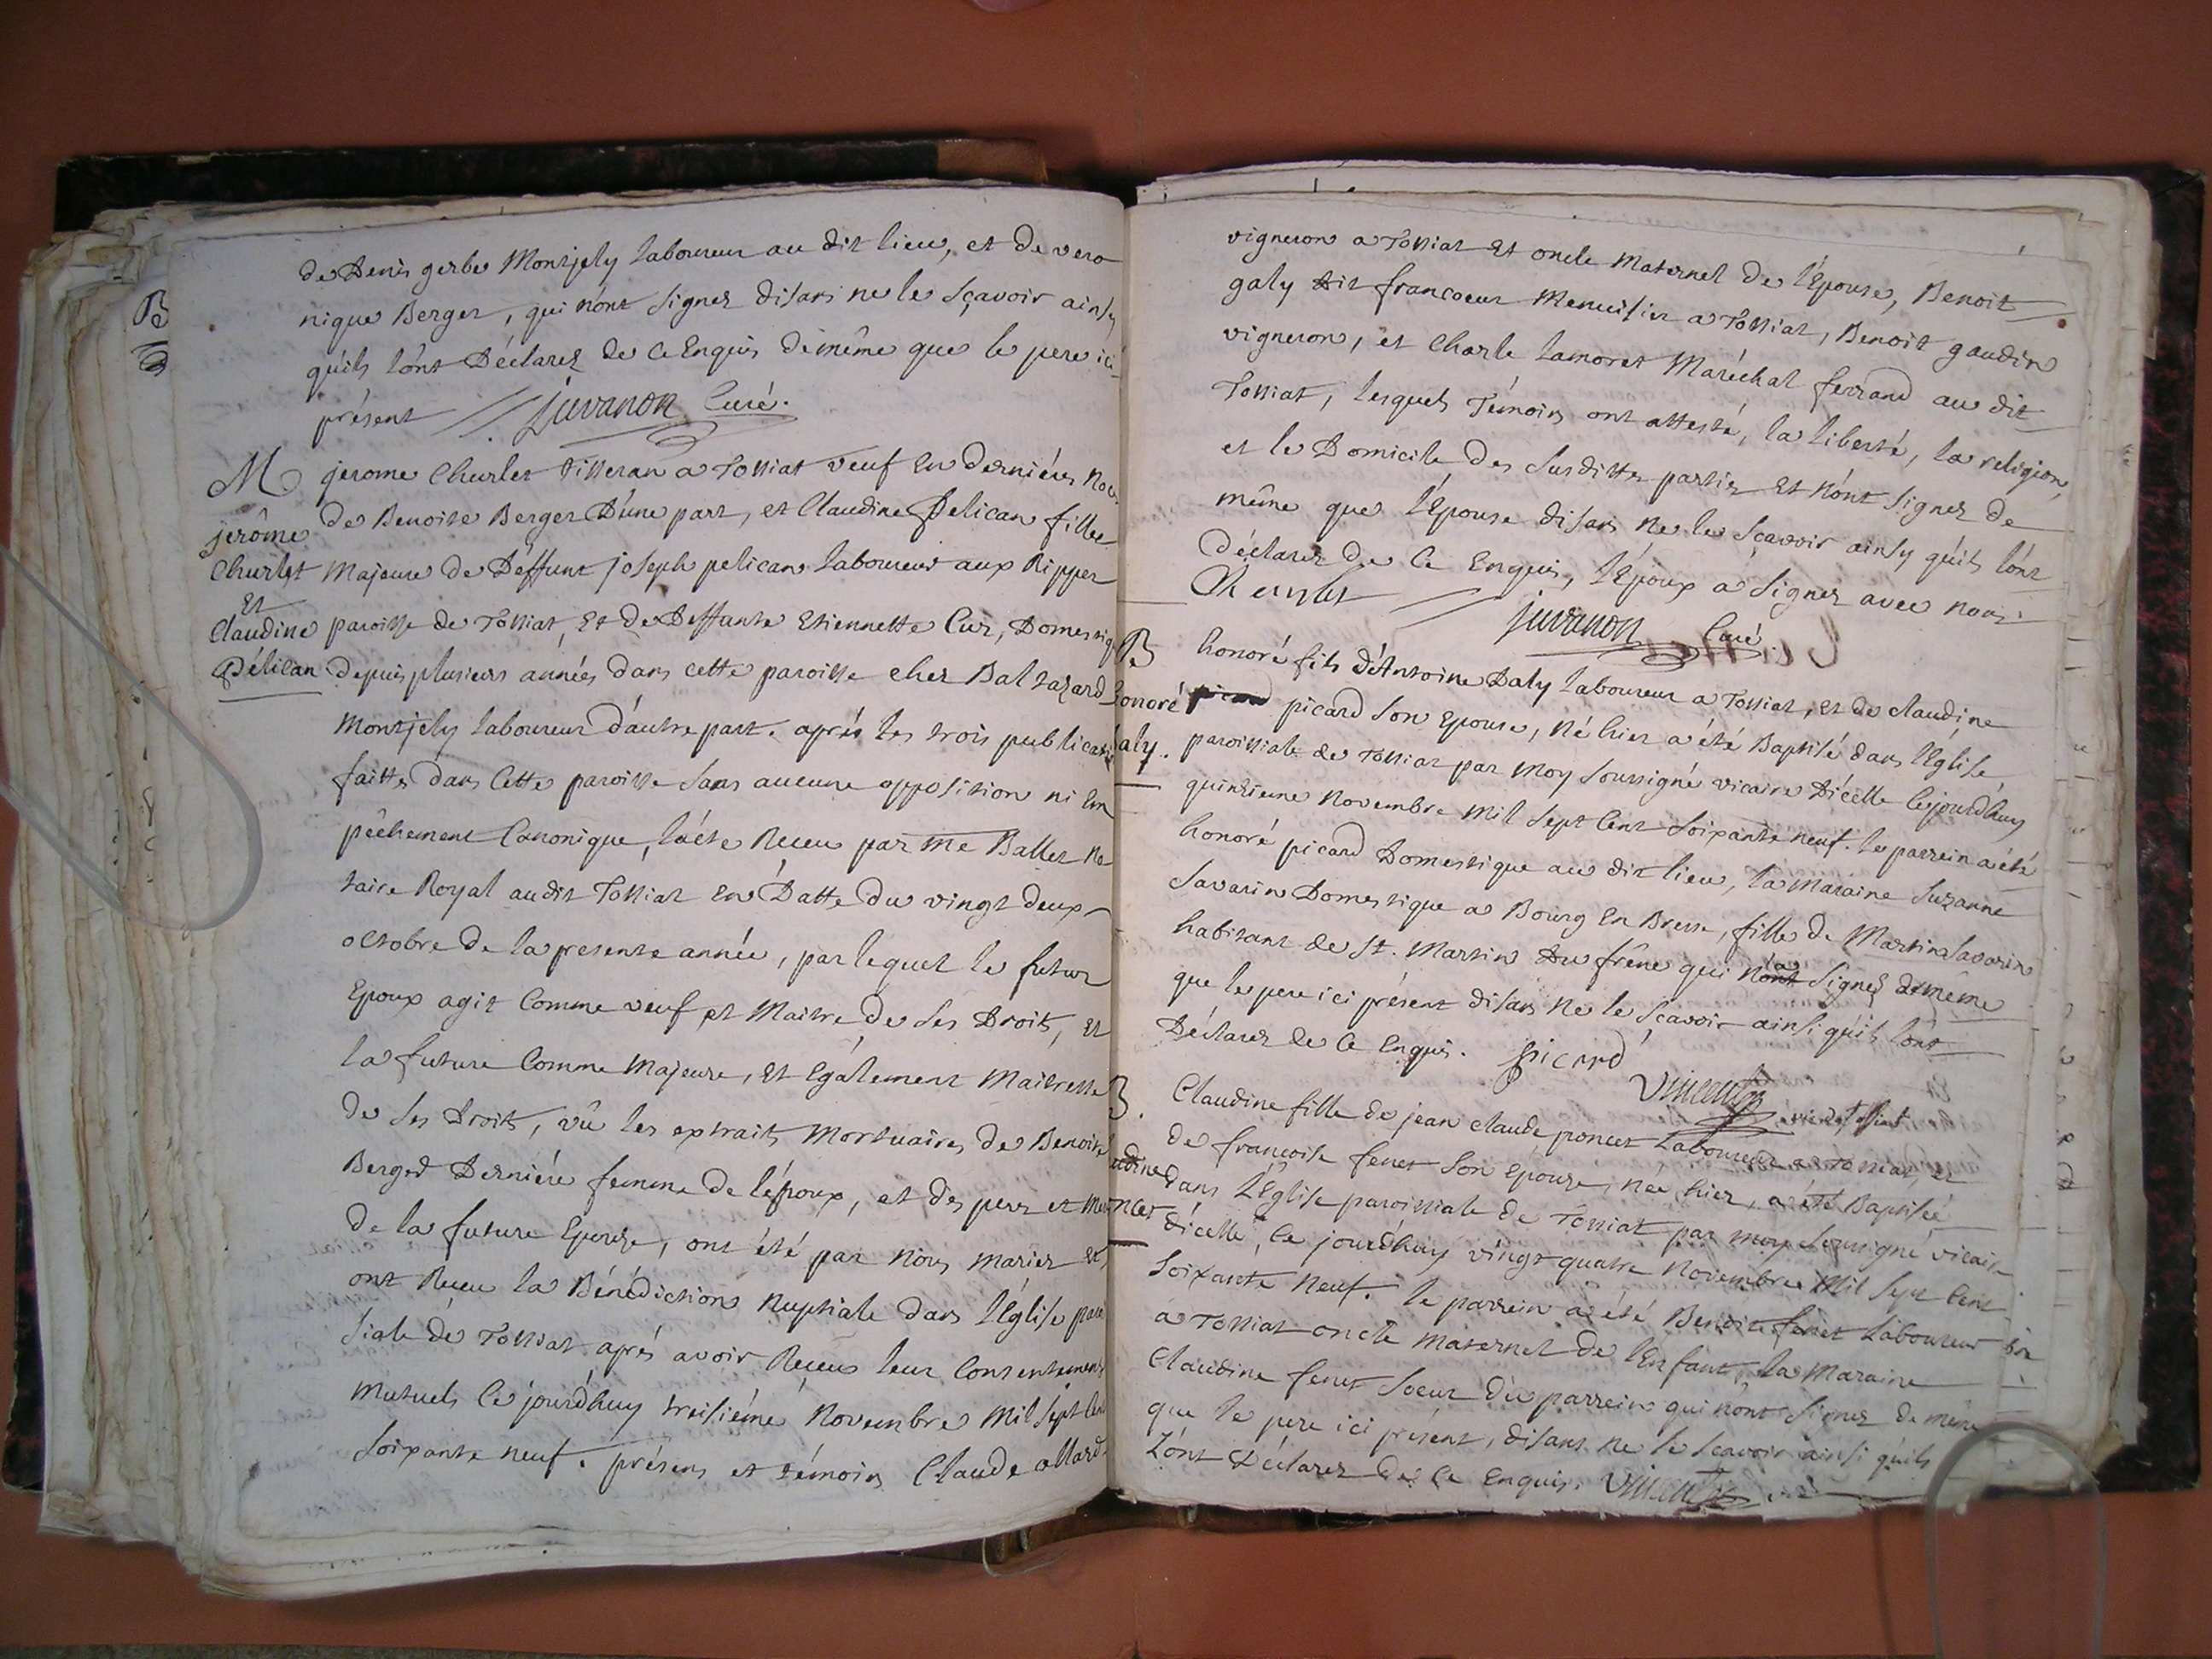 B
de Denis gerbe Montjely Laboureur au dit lieu, et de vero
nique Berger, qui n'ont signez disans ne le sçavoir ainsy
qu'ils l'ont Déclarez de ce Enquis de même que le pere ici
présent // Juvanon Curé.
M
jerôme
Churlet
Et
Claudine
Pélican
jerome Churlet Tisseran a Tossiat veuf en derniéres Noc
de Benoite Berger D'une part, et Claudine Pelican fille
Majeure de Déffunt joseph pelican Laboureur aux Rippes
paroisse de Tossiat, Et de Deffunte Etiennette Cur, Domestiq
depuis plusieurs années dans cette paroisse chez Baltazard
Montjely Laboureur d'autre part. aprés les trois publicati
faittes dans Cette paroisse sans aucune opposition ni Em
pêchement Canonique, l'acte Receu par me Ballet No
taire Royal au dit Tossiat En Datte du vingt deux
octobre de la presente année, par lequel le futur
Epoux agit Comme veuf et Maitre de ses Droits, et
la future Comme Majeure, Et Egalement Maitresse
de ses Droits, vû les extraits Mortuaires de Benoite
Berger Derniére femme de l'époux, et des pere et mer
de la future Epouse, ont été par Nous Mariez et
ont Receu la Bénédiction Nuptiale dans l'Eglise paroi
siale de Tossiat aprés avoir Receu leur Consentement
Mutuels Ce jourd'huy treisiéme Novembre Mil Sept Cent
Soixante neuf. présens et témoins Claude allard
vigneron a Tossiat Et oncle Maternel de l'Epouse, Benoit
galy dit francoeur Menuisier a Tossiat, Benoit gaudin
vigneron, et Charle Lamoret Maréchal ferrand au dit
Tossiat, lesquels Témoins ont attesté, la liberté, la religion,
et le Domicile des susdittes parties Et N'ont signez de
même que l'Epouse disans Ne le sçavoir ainsy qu'ils l'ont
Déclarez de Ce Enquis, l'Epoux a signez avec Nous.
Churlet // juvanon Curé
B
honoré
Daly.
honoré fils d'Antoine Daly Laboureur a Tossiat, et de claudine
picard son Epouse, Né hier a été Baptisé dans l'Eglise
paroissiale de Tossiat par Moy soussigné vicaire D'icelle Cejourdhuy
quinzieme Novembre Mil sept Cent soixante neuf. le parrein a été
honoré picard Domestique au dit lieu, la Maraine Suzanne
Savarin Domestique a Bourg En Bresse, fille de Martin Savarin
habitant de St. Martin Du frêne qui n'a signez de même
que le pere ici présent disans Ne le sçavoir ainsi qu'ils l'ont
Déclarez de Ce Enquis. picard
Vincent vic. de Tossiat
B.
Claudine
Poncet
Claudine fille de jean claude poncet Laboureur a Tossiat, et
de francoise fenet son Epouse, Née hier, a été Baptisée
dans l'Eglise paroissiale de Tossiat par moy soussigné vicaire
d'icelle, Ce jourd'huy vingt quatre Novembre Mil Sept Cent
Soixante Neuf. le parrein a été Benoit fenet Laboureur
a Tossiat oncle Maternel de l'Enfant, la Maraine
Claudine fenet soeur du parrein qui n'ont signez de même
que le pere ici présent, disans ne le sçavoir ainsi qu'ils
L'ont Déclarez de Ce Enquis. Vincent